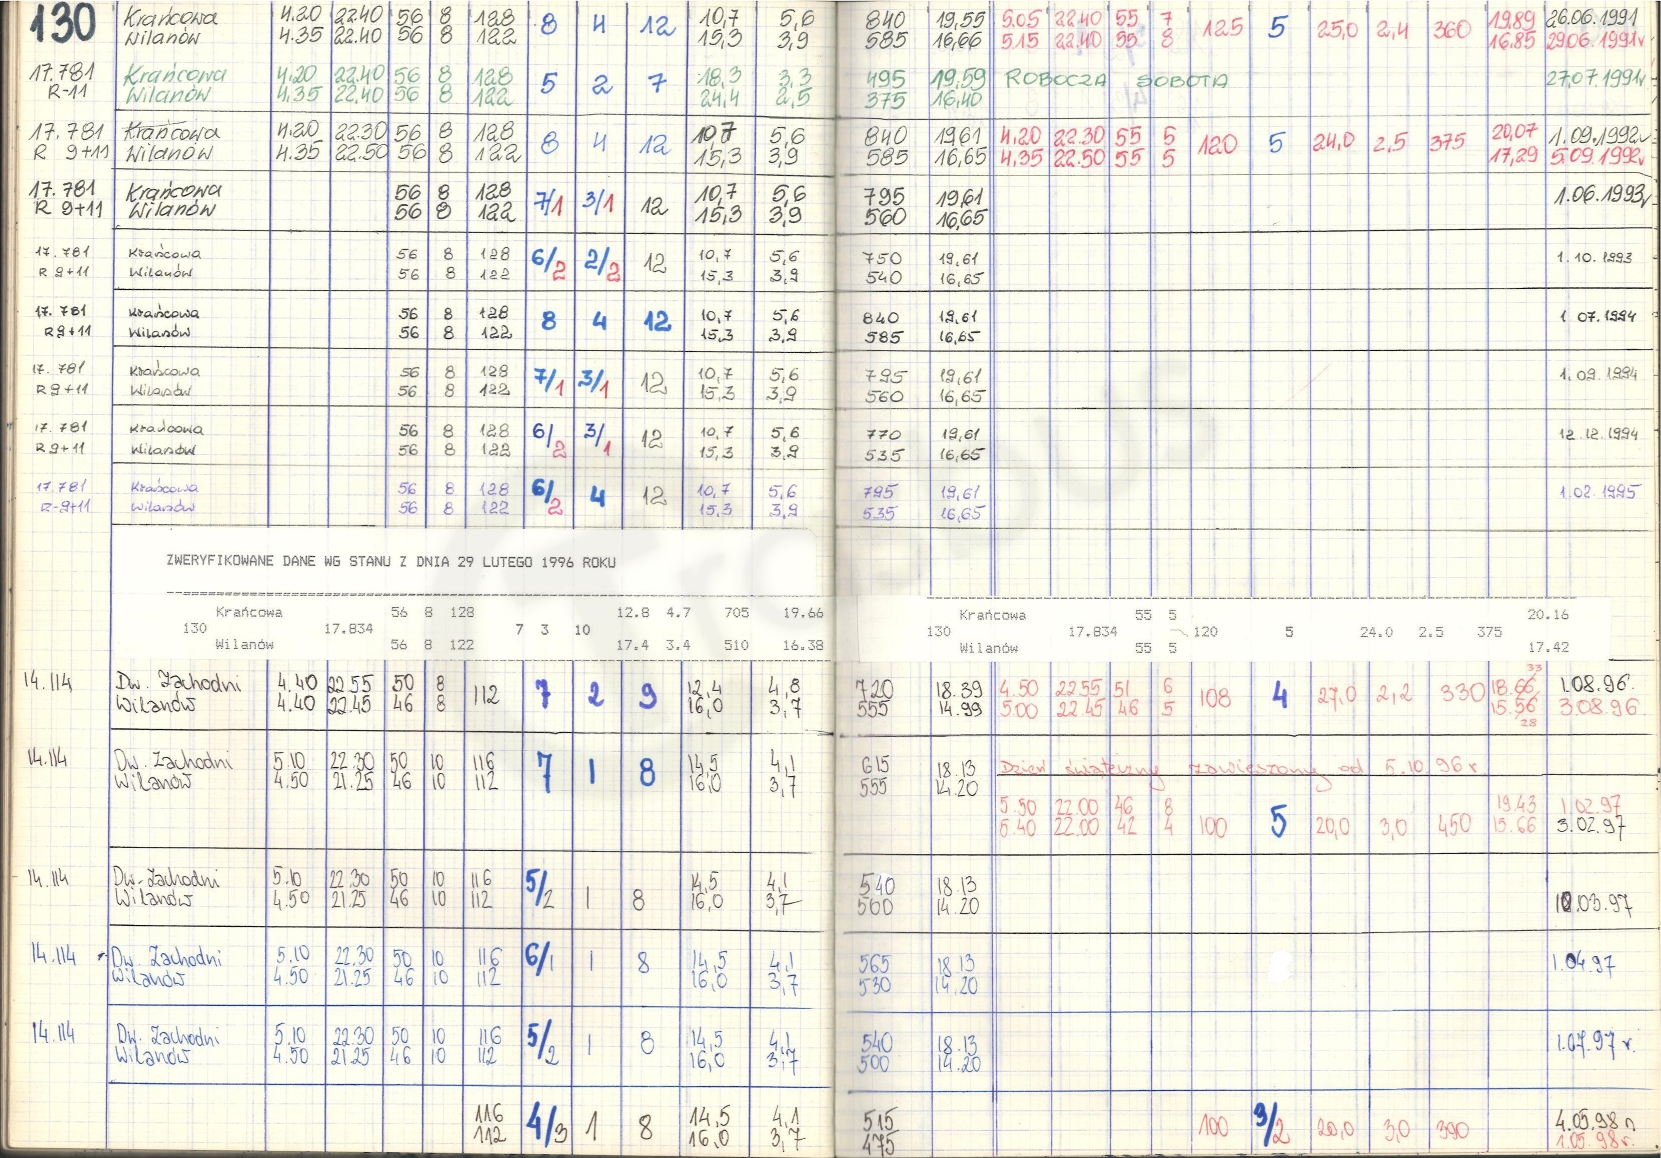 130 Krańcowa 4.20 22.40 56 8 128 8 4 12 10,7 5,6 840 19,55 5.05 22.40 55 7 125 5 25,0 2,4 360 19.89 26.06.1991
Wilanów 4.35 22.40 56 8 122 15,3 3,9 585 16,66 5.15 22.40 55 8 16.85 29.06.1991r
17.781 Krańcowa 4.20 22.40 56 8 128 5 2 7 18,3 3,3 495 19,59 ROBOCZA SOBOTA 27.07.1991r
R-11 Wilanów 4.35 22.40 56 8 122 24,4 2,5 375 16,40
17.781 Krańcowa 4.20 22.30 56 8 128 8 4 12 10,7 5,6 840 19,61 4.20 22.30 55 5 120 5 24,0 2,5 375 20,07 1.09.1992r
R 9+11 Wilanów 4.35 22.50 56 8 122 15,3 3,9 585 16,65 4.35 22.50 55 5 17,29 5.09.1992r
17.781 Krańcowa 56 8 128 7/1 3/1 12 10,7 5,6 795 19,61 1.06.1993r
R 9+11 Wilanów 56 8 122 15,3 3,9 560 16,65
17.781 Krańcowa 56 8 128 6/2 2/2 12 10,7 5,6 750 19,61 1.10.1993
R 9+11 Wilanów 56 8 122 15,3 3,9 540 16,65
17.781 Krańcowa 56 8 128 8 4 12 10,7 5,6 840 19,61 1 07.1994
R9+11 Wilanów 56 8 122 15,3 3,9 585 16,65
17.781 Krańcowa 56 8 128 7/1 3/1 12 10,7 5,6 795 19,61 1.09.1994
R9+11 Wilanów 56 8 122 15,3 3,9 560 16,65
17.781 Krańcowa 56 8 128 6/2 3/1 12 10,7 5,6 770 19,61 12.12.1994
R9+11 Wilanów 56 8 122 15,3 3,9 535 16,65
17.781 Krańcowa 56 8 128 6/2 4 12 10,7 5,6 795 19,61 1.02.1995
R-9+11 Wilanów 56 8 122 15,3 3,9 535 16,65
ZWERYFIKOWANE DANE WG STANU Z DNIA 29 LUTEGO 1996 ROKU
Krańcowa 56 8 128 12.8 4.7 705 19.66 Krańcowa 55 5 20.16
130 17.834 7 3 10 130 17.834 120 5 24.0 2.5 375
Wilanów 56 8 122 17.4 3.4 510 16.38 Wilanów 55 5 17.42
14.114 Dw. Zachodni 4.40 22.55 50 8 112 7 2 9 12,4 4,8 720 18.39 4.50 22.55 51 6 108 4 27,0 2,2 330 18.66 33 1.08.96.
Wilanów 4.40 22.45 46 8 16,0 3,7 555 14.99 5.00 22.45 46 5 15.56 28 3.08.96
14.114 Dw. Zachodni 5.10 22.30 50 10 116 7 1 8 14,5 4,1 615 18.13 Dzień świąteczny zawieszony od 5.10.96r
Wilanów 4.50 21.25 46 10 112 16,0 3,7 555 14.20
5.50 22.00 46 8 100 5 20,0 3,0 450 19.43 1.02.97
5.40 22.00 42 4 15.66 3.02.97
14.114 Dw. Zachodni 5.10 22.30 50 10 116 5/2 1 8 14,5 4,1 540 18.13
Wilanów 4.50 21.25 46 10 112 16,0 3,7 500 14.20 .03.97
14.114 Dw. Zachodni 5.10 22.30 50 10 116 6/1 1 8 14,5 4,1 565 18.13 1.04.97
Wilanów 4.50 21.25 46 10 112 16,0 3,7 530 14.20
14.114 Dw. Zachodni 5.10 22.30 50 10 116 5/2 1 8 14,5 4,1 540 18.13 1.07.97 r.
Wilanów 4.50 21.25 46 10 112 16,0 3,7 500 14.20
116 4/3 1 8 14,5 4,1 515 100 3/2 20,0 3,0 390 4.05.98 r
112 16,0 3,7 475 1.05.98r.